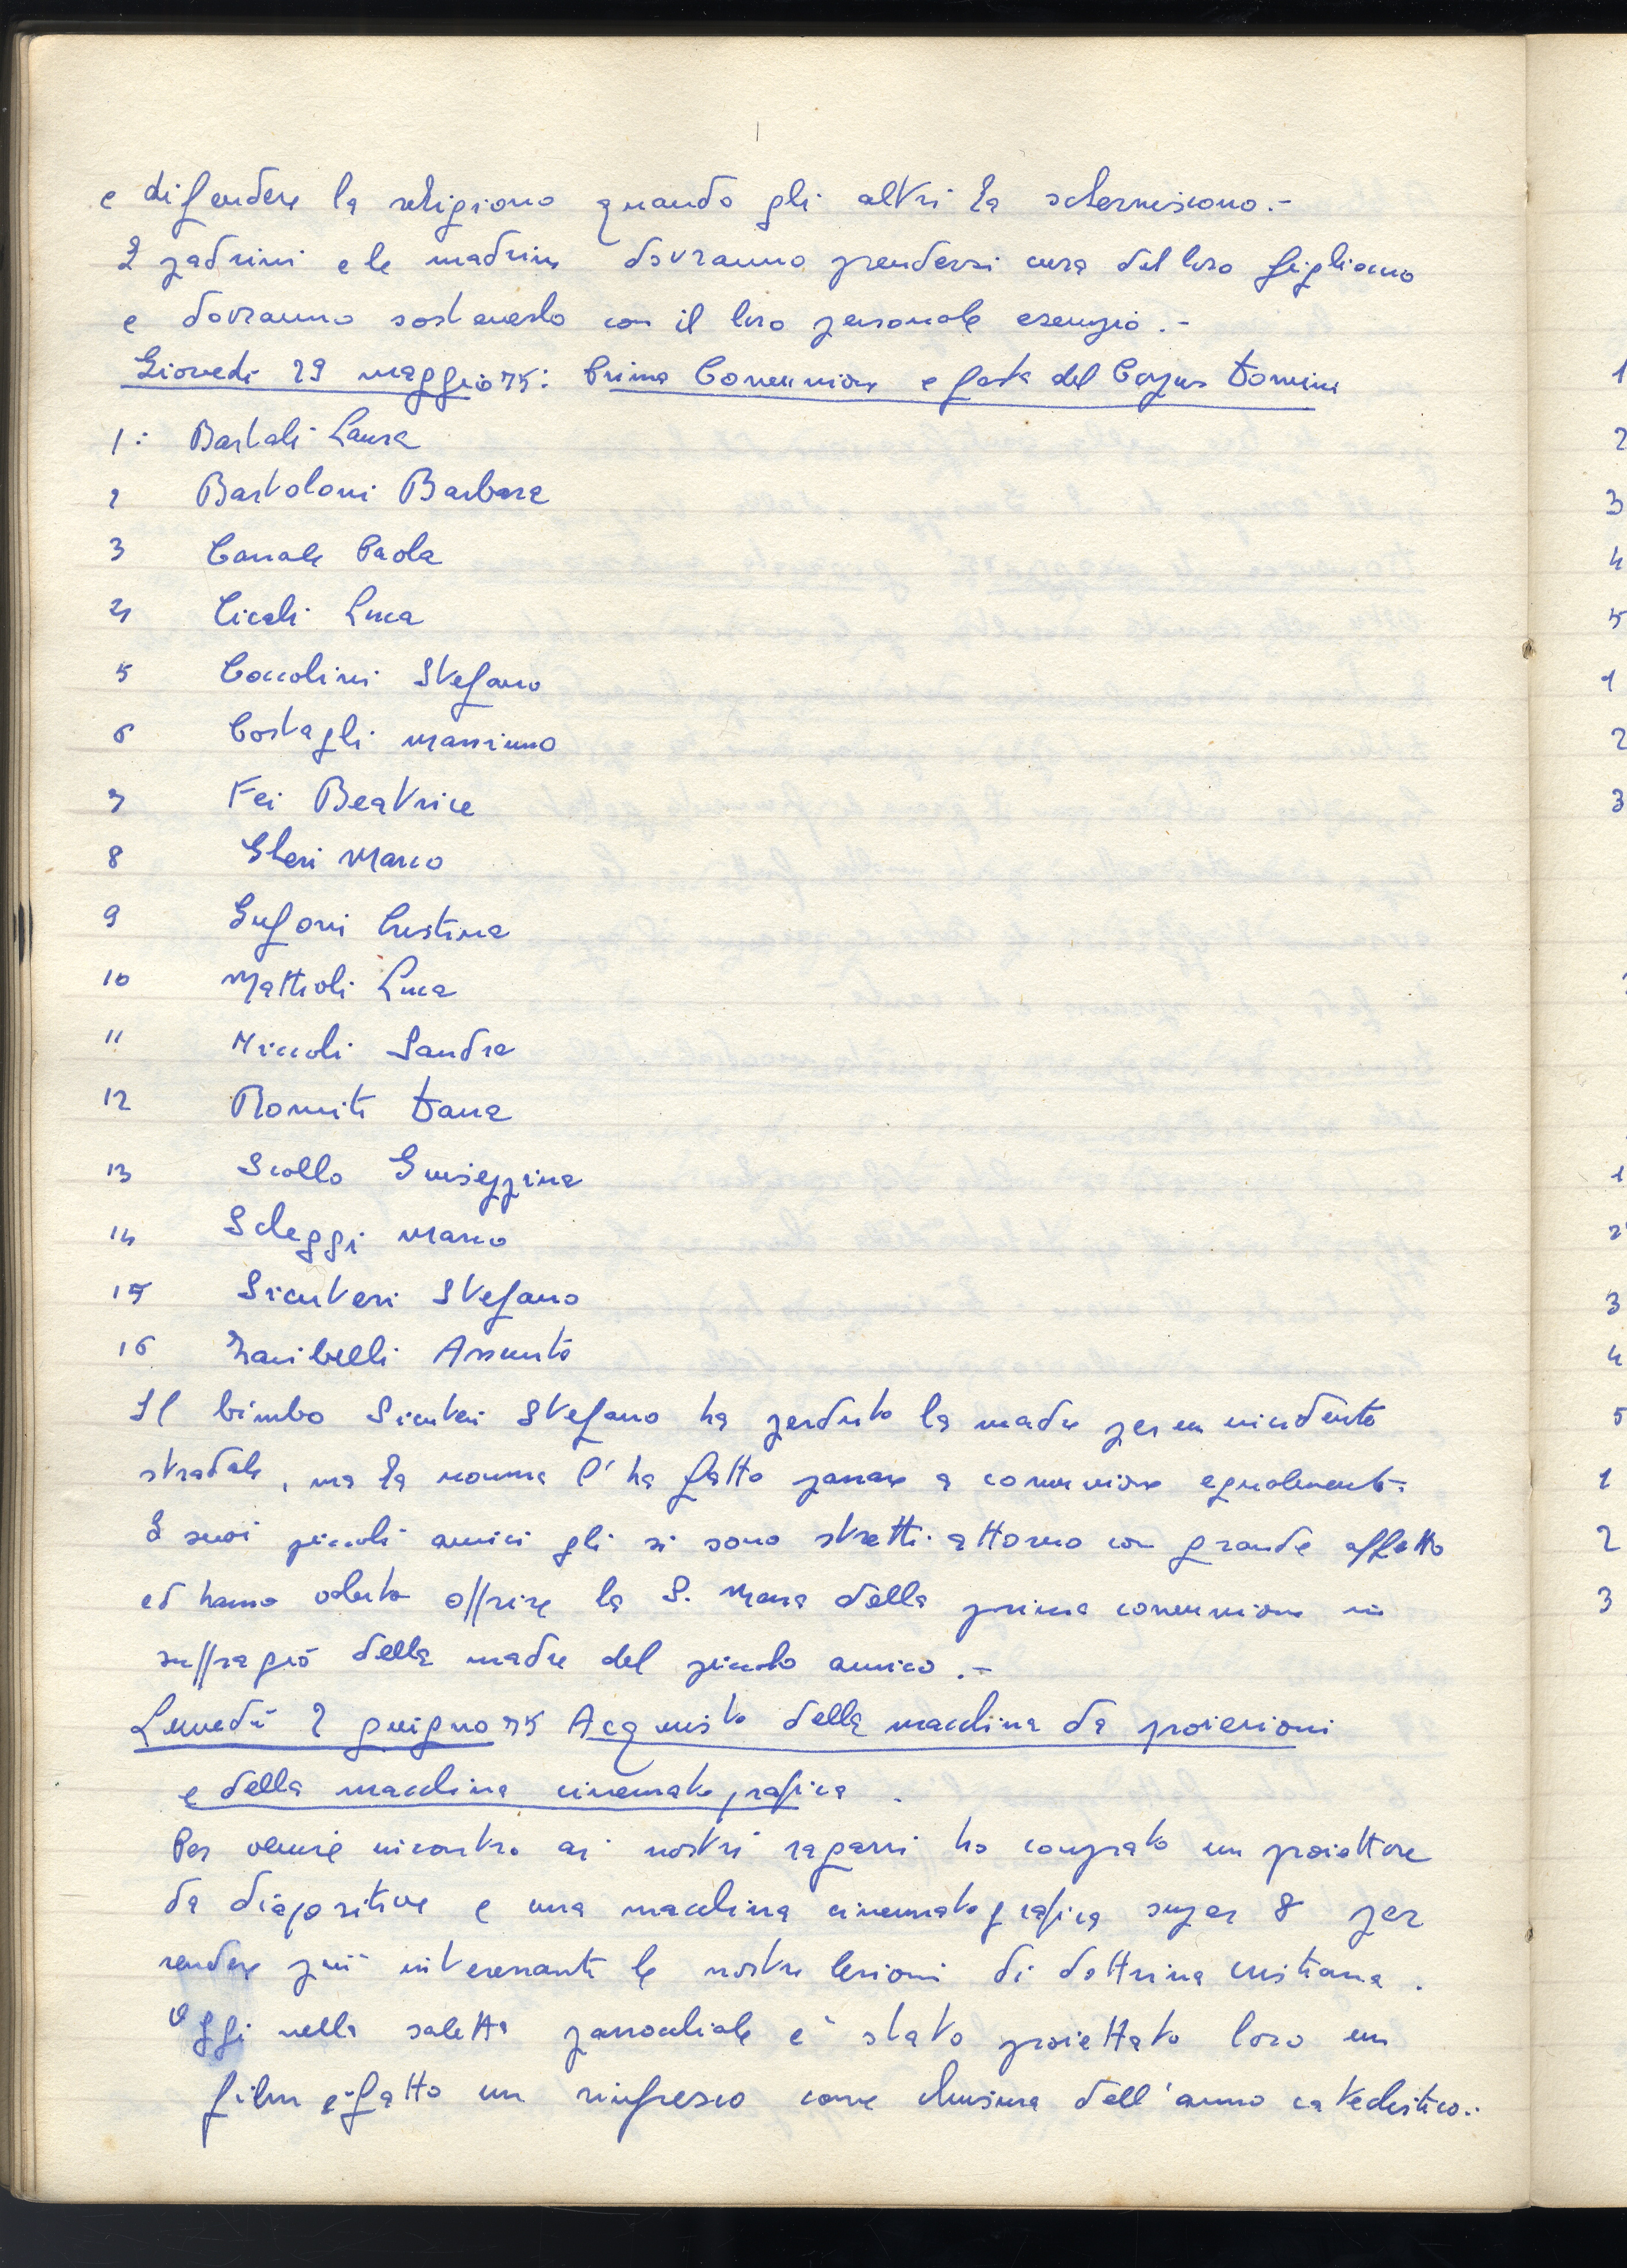 e difendere la religione quando gli altri la scherniscono.-
I padrini e le madrine dovranno prendersi cura del loro figlioccio
e dovranno sostenerlo con il loro personale esempio.-
Giovedì 29 maggio 75: Prima Comunione e festa del Corpus Domini
1: Bartali Laura
2 Bartoloni Barbara
3 Canale Paola
4 Cicali Luca
5 Coccolini Stefano
6 Costagli Massimo
7 Fei Beatrice
8 Gheri Marco
9 Gufoni Cristina
10 Mattioli Luca
11 Niccoli Sandra
12 Romiti Dana
13 Scollo Giuseppina
14 Scheggi Marco
15 Sicuteri Stefano
16 Zanibelli Assunta
Il bimbo Sicuteri Stefano ha perduto la madre per un incidente
stradale, ma la nonna l'ha fatto passare a comunione egualmente.
I suoi piccoli amici gli si sono stretti attorno con grande affetto
ed hanno voluto offrire la S. Messa della prima comunione in
suffragio della madre del piccolo amico.-
Lunedì 2 giugno 75 Acquisto della macchina da proiezioni
e della macchina cinematografica.
Per venire incontro ai nostri ragazzi ho comprato un proiettore
da diapositive e una macchina cinematografica super 8 per
rendere più interessanti le nostre lezioni di dottrina cristiana.
Oggi nella saletta parrocchiale è stato proiettato loro un
film e fatto un rinfresco come chiusura dell'anno catechistico.-
1
2
3
4
5
1
2
3
1
2
3
4
5
1
2
3